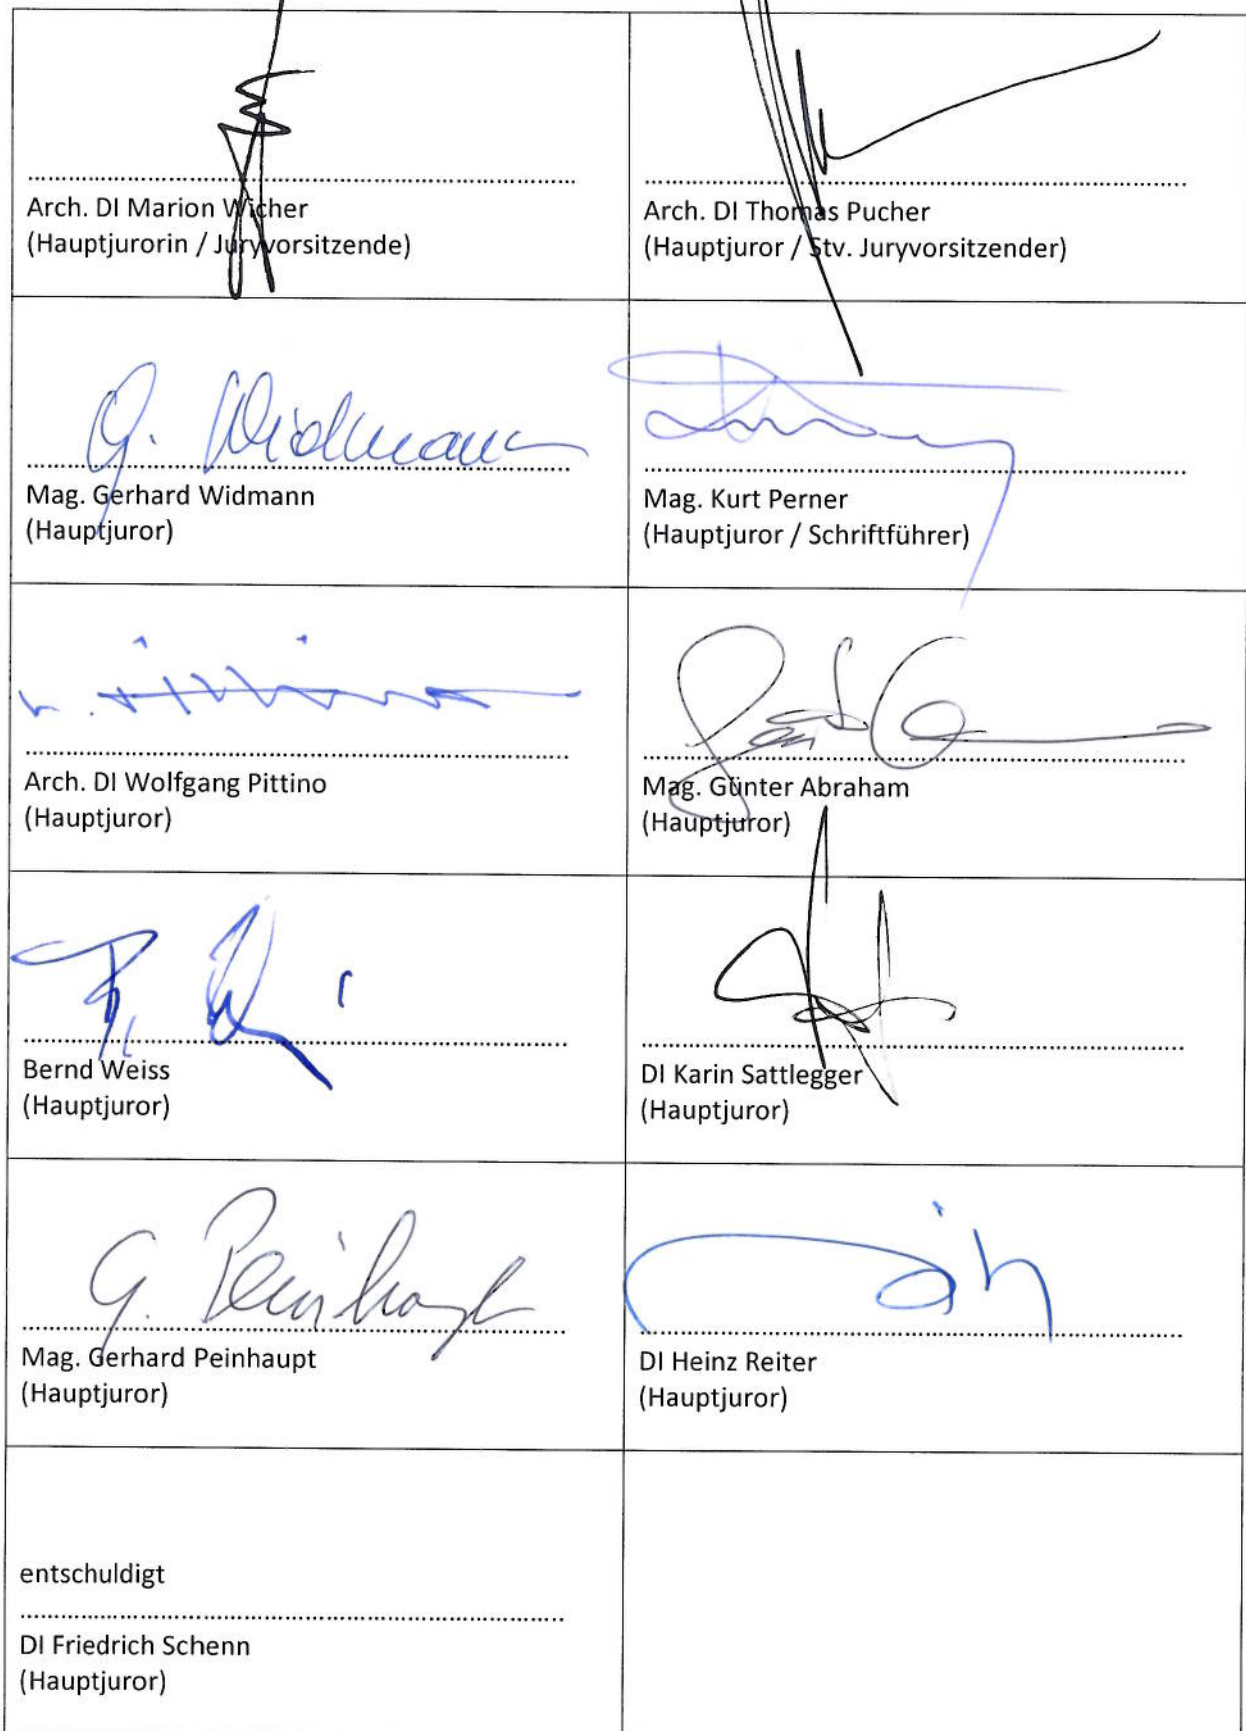 Arch. DI Marion Wicher
(Hauptjurorin / Juryvorsitzende)
Arch. DI Thomas Pucher
(Hauptjuror / Stv. Juryvorsitzender)
G. Widmann
Mag. Gerhard Widmann
(Hauptjuror)
Mag. Kurt Perner
(Hauptjuror / Schriftführer)
Arch. DI Wolfgang Pittino
(Hauptjuror)
Mag. Günter Abraham
(Hauptjuror)
Bernd Weiss
(Hauptjuror)
DI Karin Sattlegger
(Hauptjuror)
G. Peinhaupt
Mag. Gerhard Peinhaupt
(Hauptjuror)
DI Heinz Reiter
(Hauptjuror)
entschuldigt
DI Friedrich Schenn
(Hauptjuror)